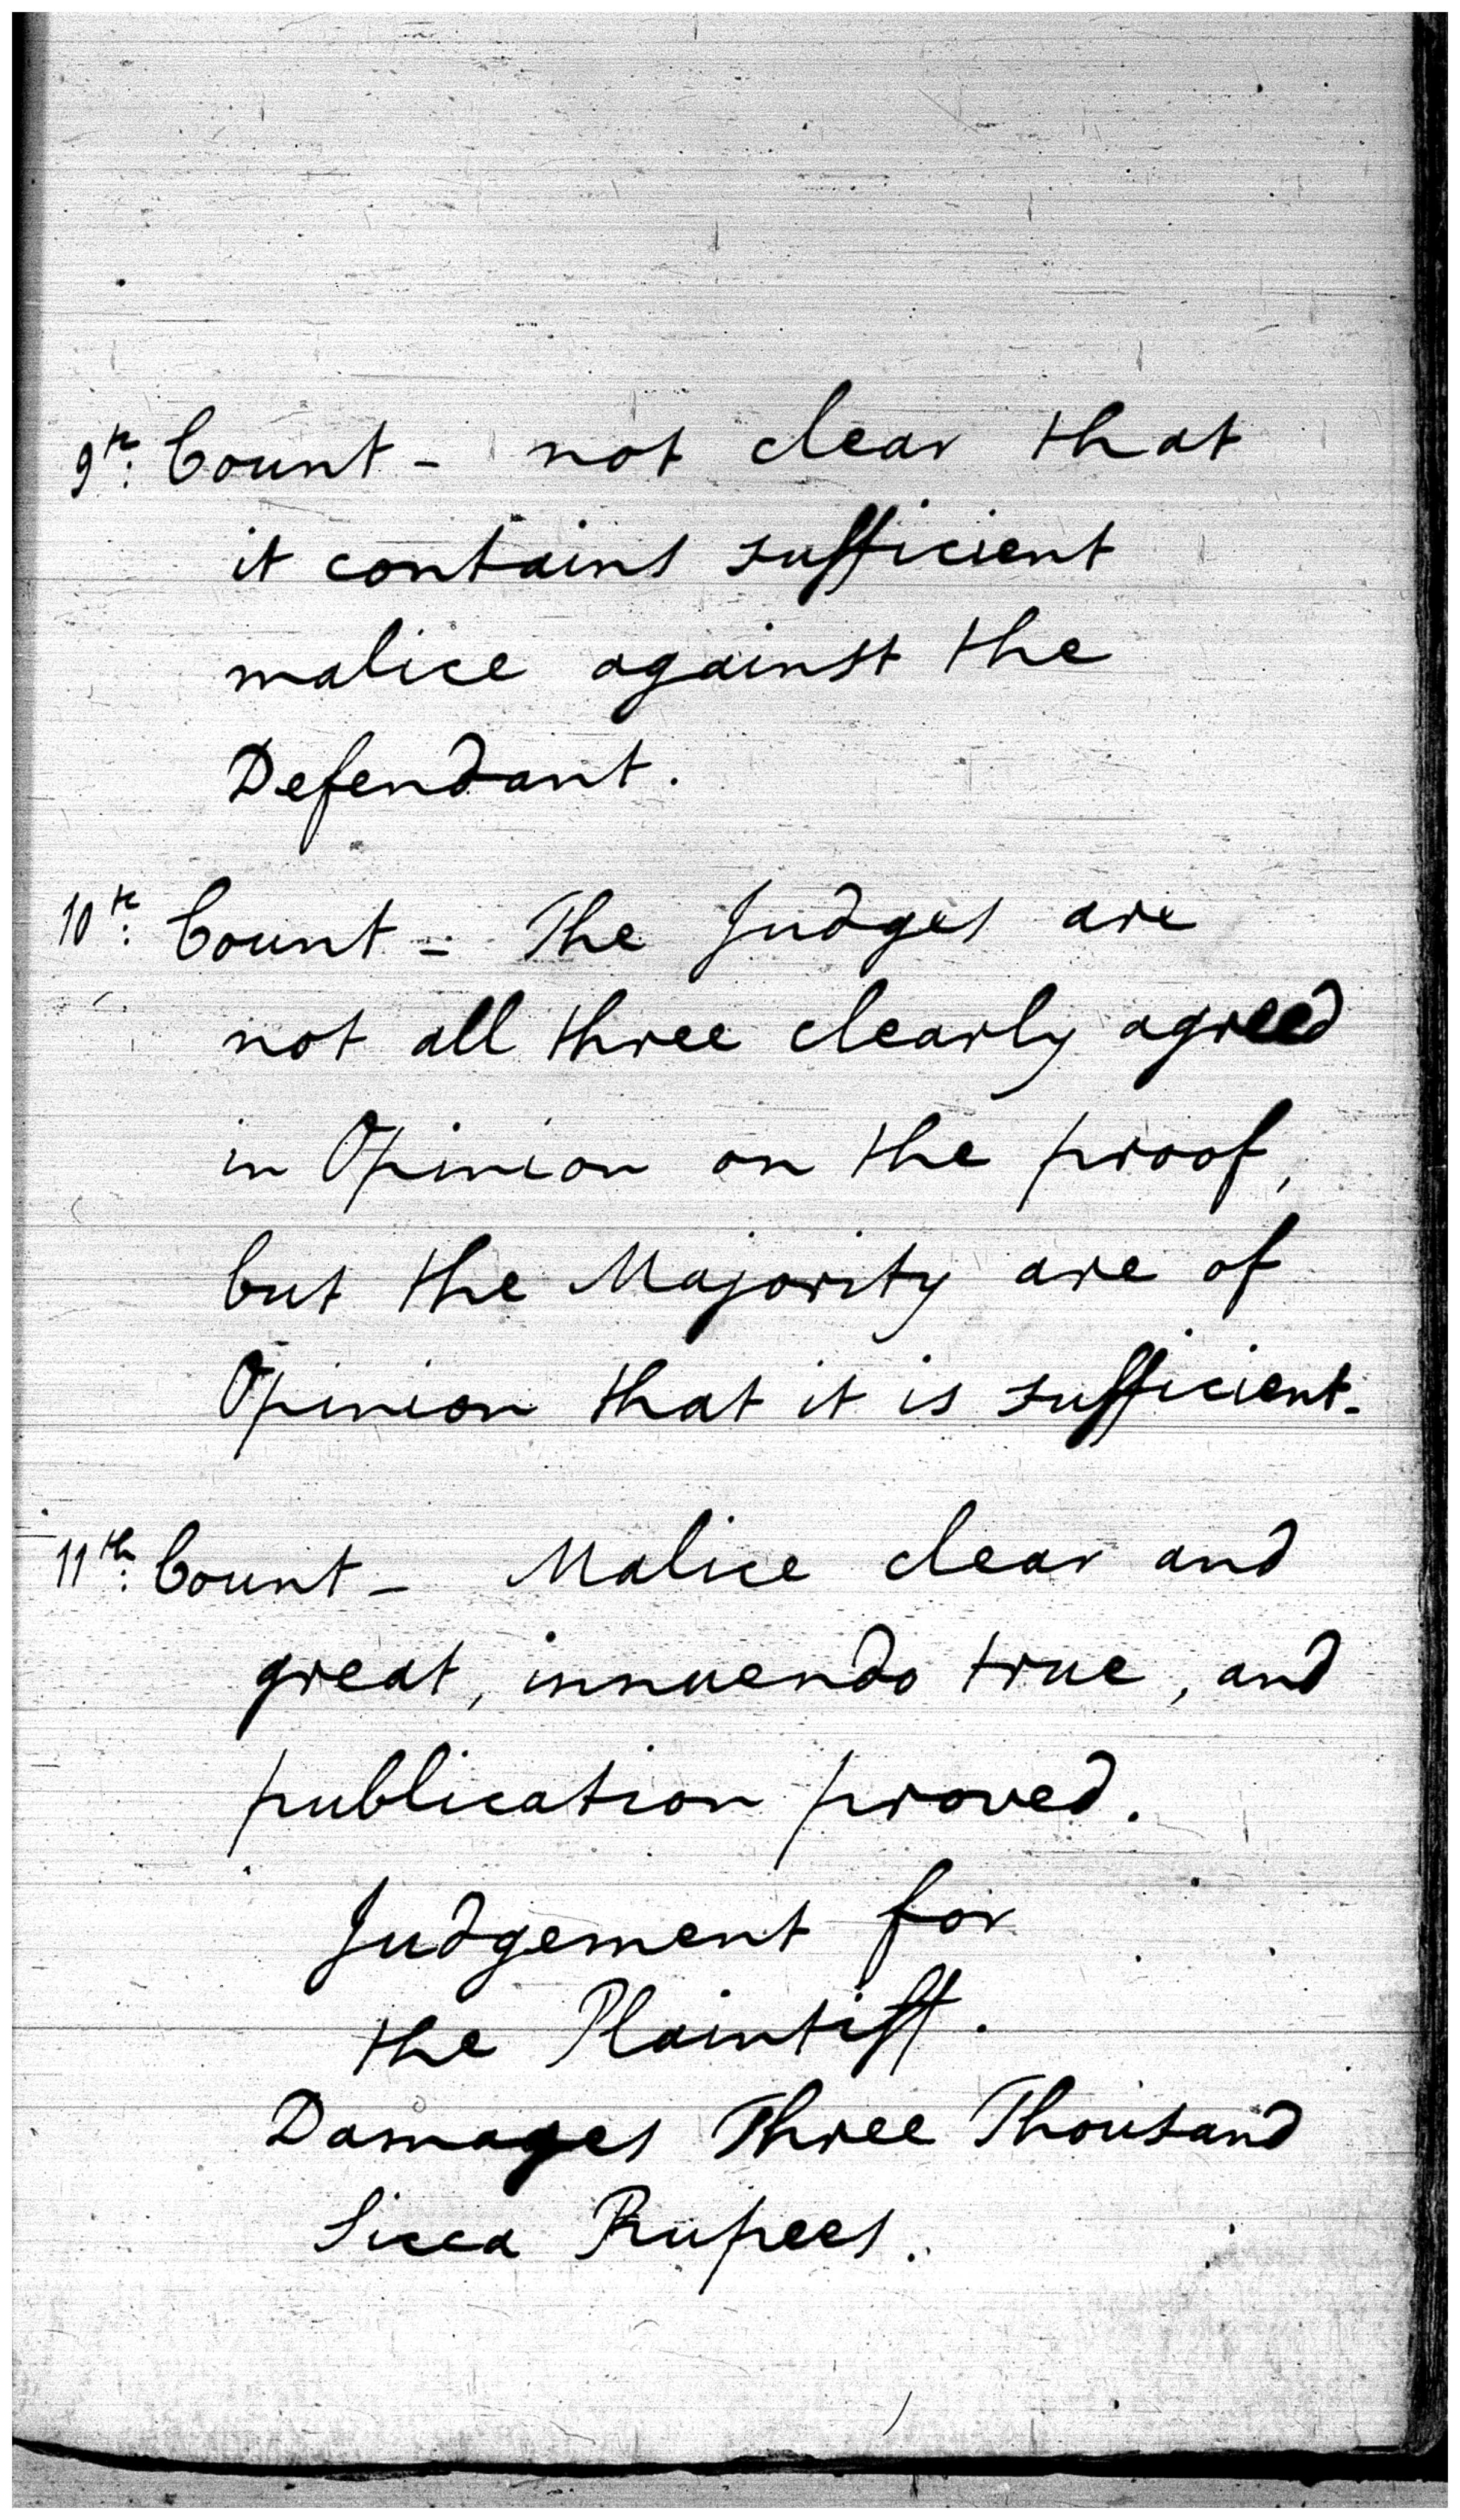 9th: Count - not clear that
it contains sufficient
malice against the
Defendant.
10th: Count - The Judges are
not all three clearly agreed
in Opinion on the proof,
but the Majority are of
Opinion that it is sufficient.
11th: Count - Malice clear and
great, innuendo true, and
publication proved.
Judgement for
the Plaintiff.
Damages Three Thousand
Sicca Rupees.